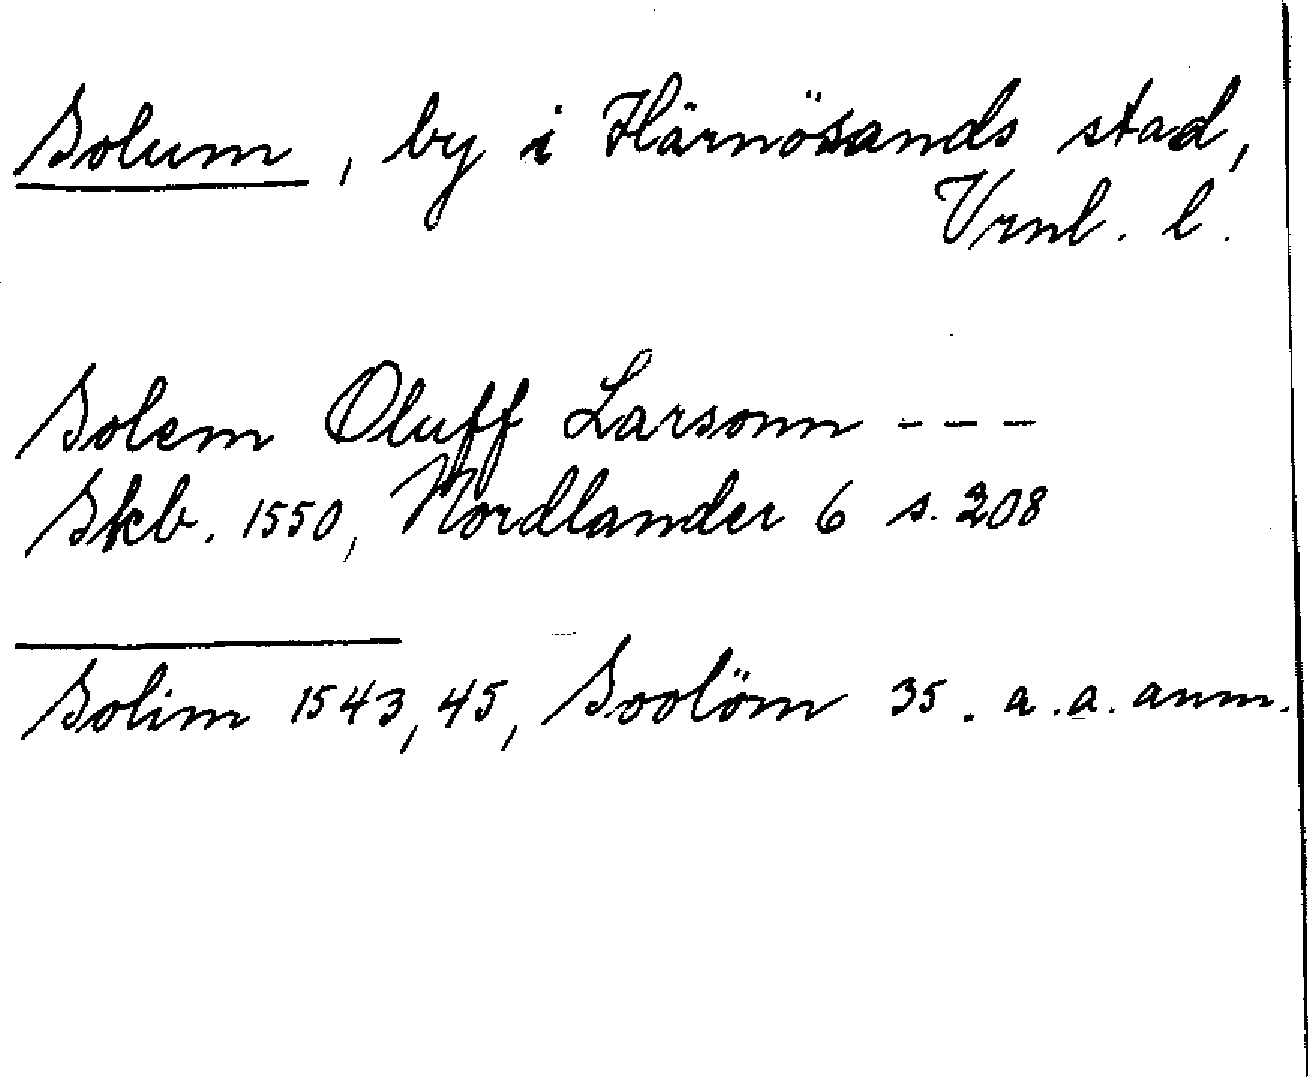 Solum, by i Härnösands stad,
Vrnl. l.
Solem Oluff Larsonn ---
Skb. 1550, Nordlander 6 s. 208
Solim 1543, 45, Soolöm 35. a.a. anm.